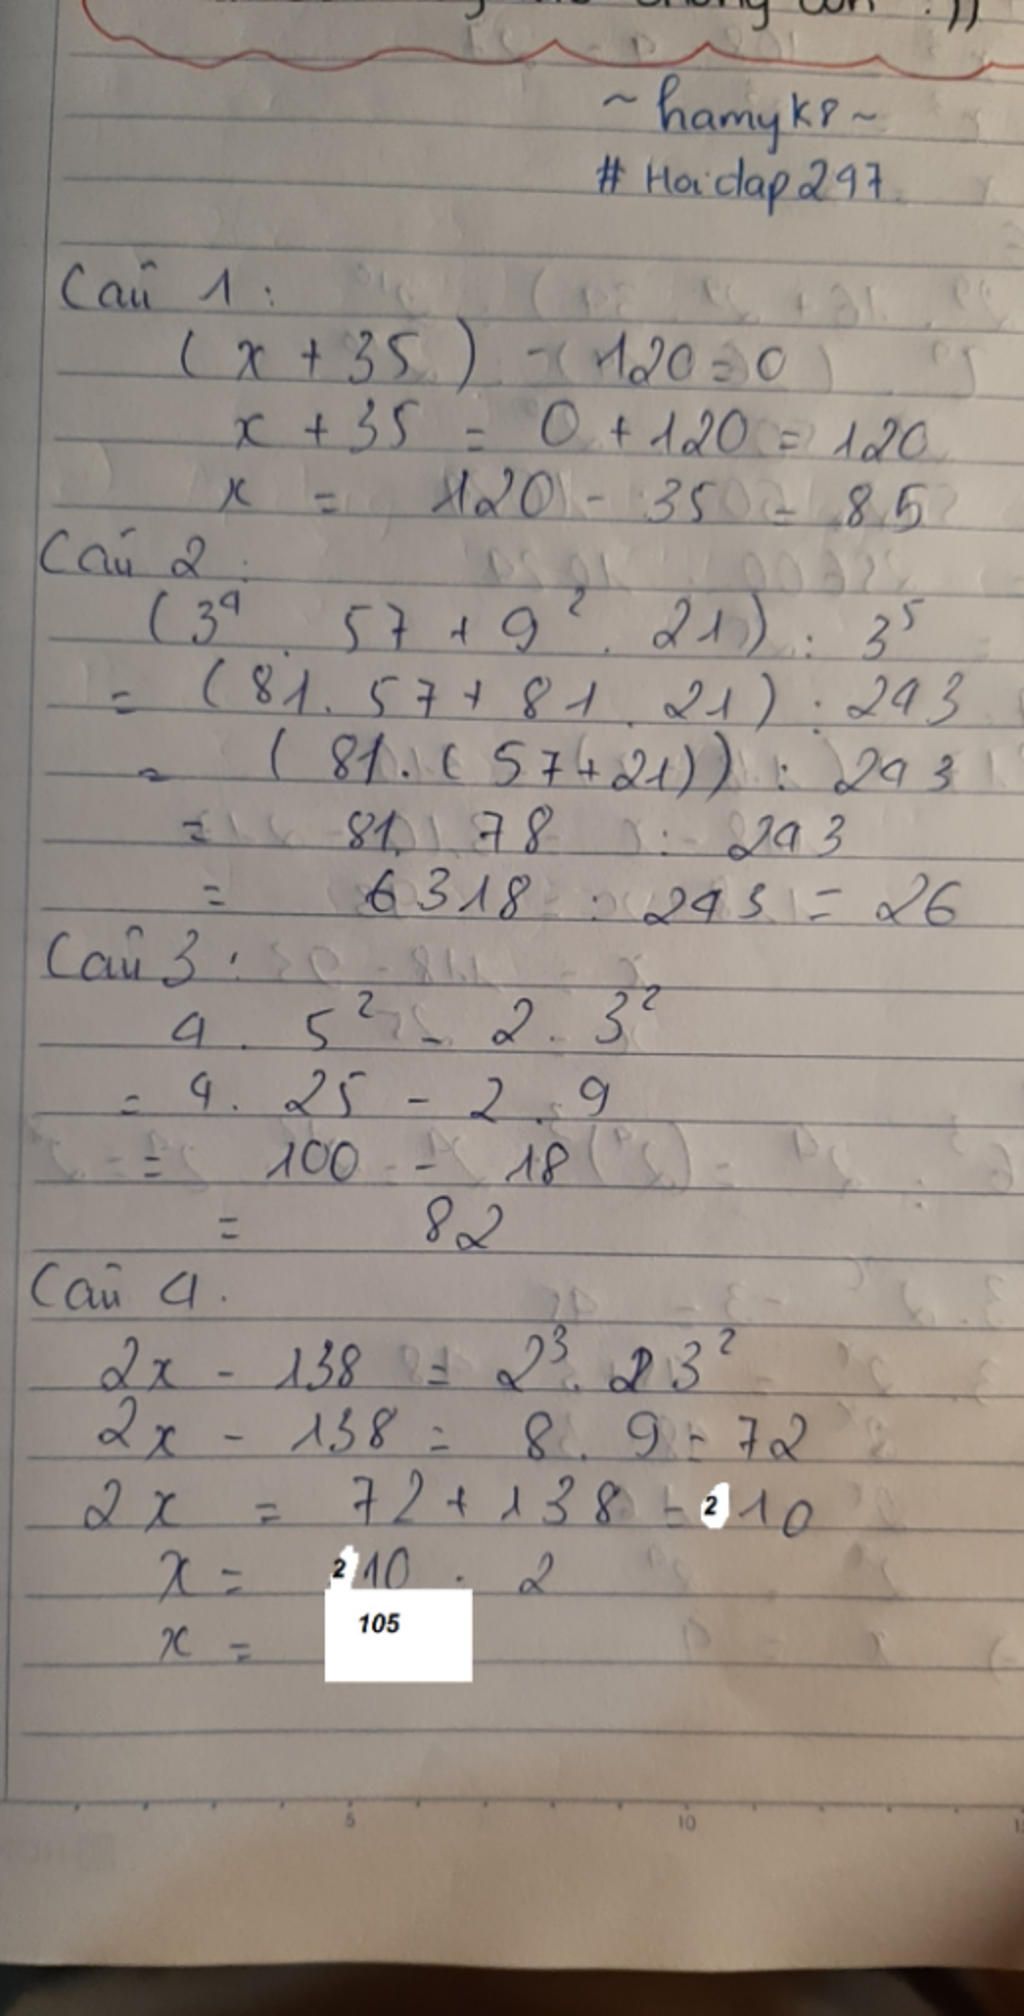 ~ hamyk8 ~
# Hoidap247
Câu 1:
(x + 35) - 120 = 0
x + 35 = 0 + 120 = 120
x = 120 - 35 = 85
Câu 2:
(3⁴ . 57 + 9² . 21) : 3⁵
= (81 . 57 + 81 . 21) : 243
= (81 . (57 + 21)) : 243
= 81 . 78 : 243
= 6318 : 243 = 26
Câu 3:
4 . 5² - 2 . 3²
= 4 . 25 - 2 . 9
= 100 - 18
= 82
Câu 4.
2x - 138 = 2³ . 3²
2x - 138 = 8 . 9 = 72
2x = 72 + 138 = 210
x = 210 : 2
x = 105
5 10